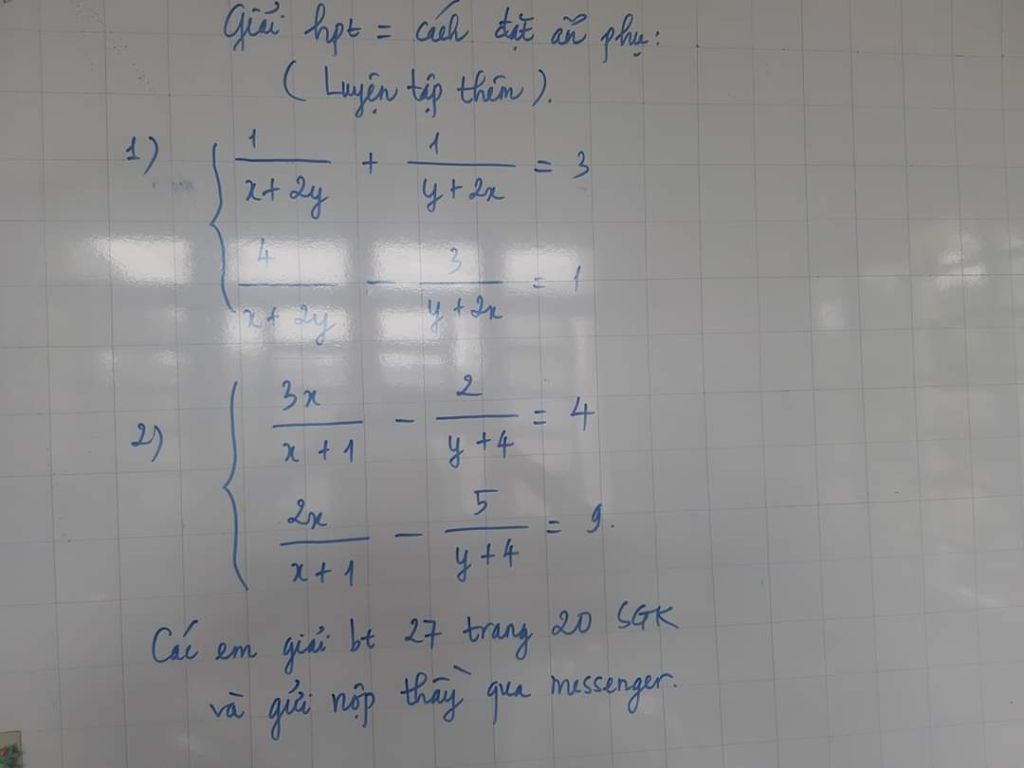 Giải hpt = cách đặt ẩn phụ:
(Luyện tập thêm).
1) { 1/(x+2y) + 1/(y+2x) = 3
4/(x+2y) - 3/(y+2x) = 1
2) { 3x/(x+1) - 2/(y+4) = 4
2x/(x+1) - 5/(y+4) = 9.
Các em giải bt 27 trang 20 SGK
và gửi nộp thầy qua messenger.